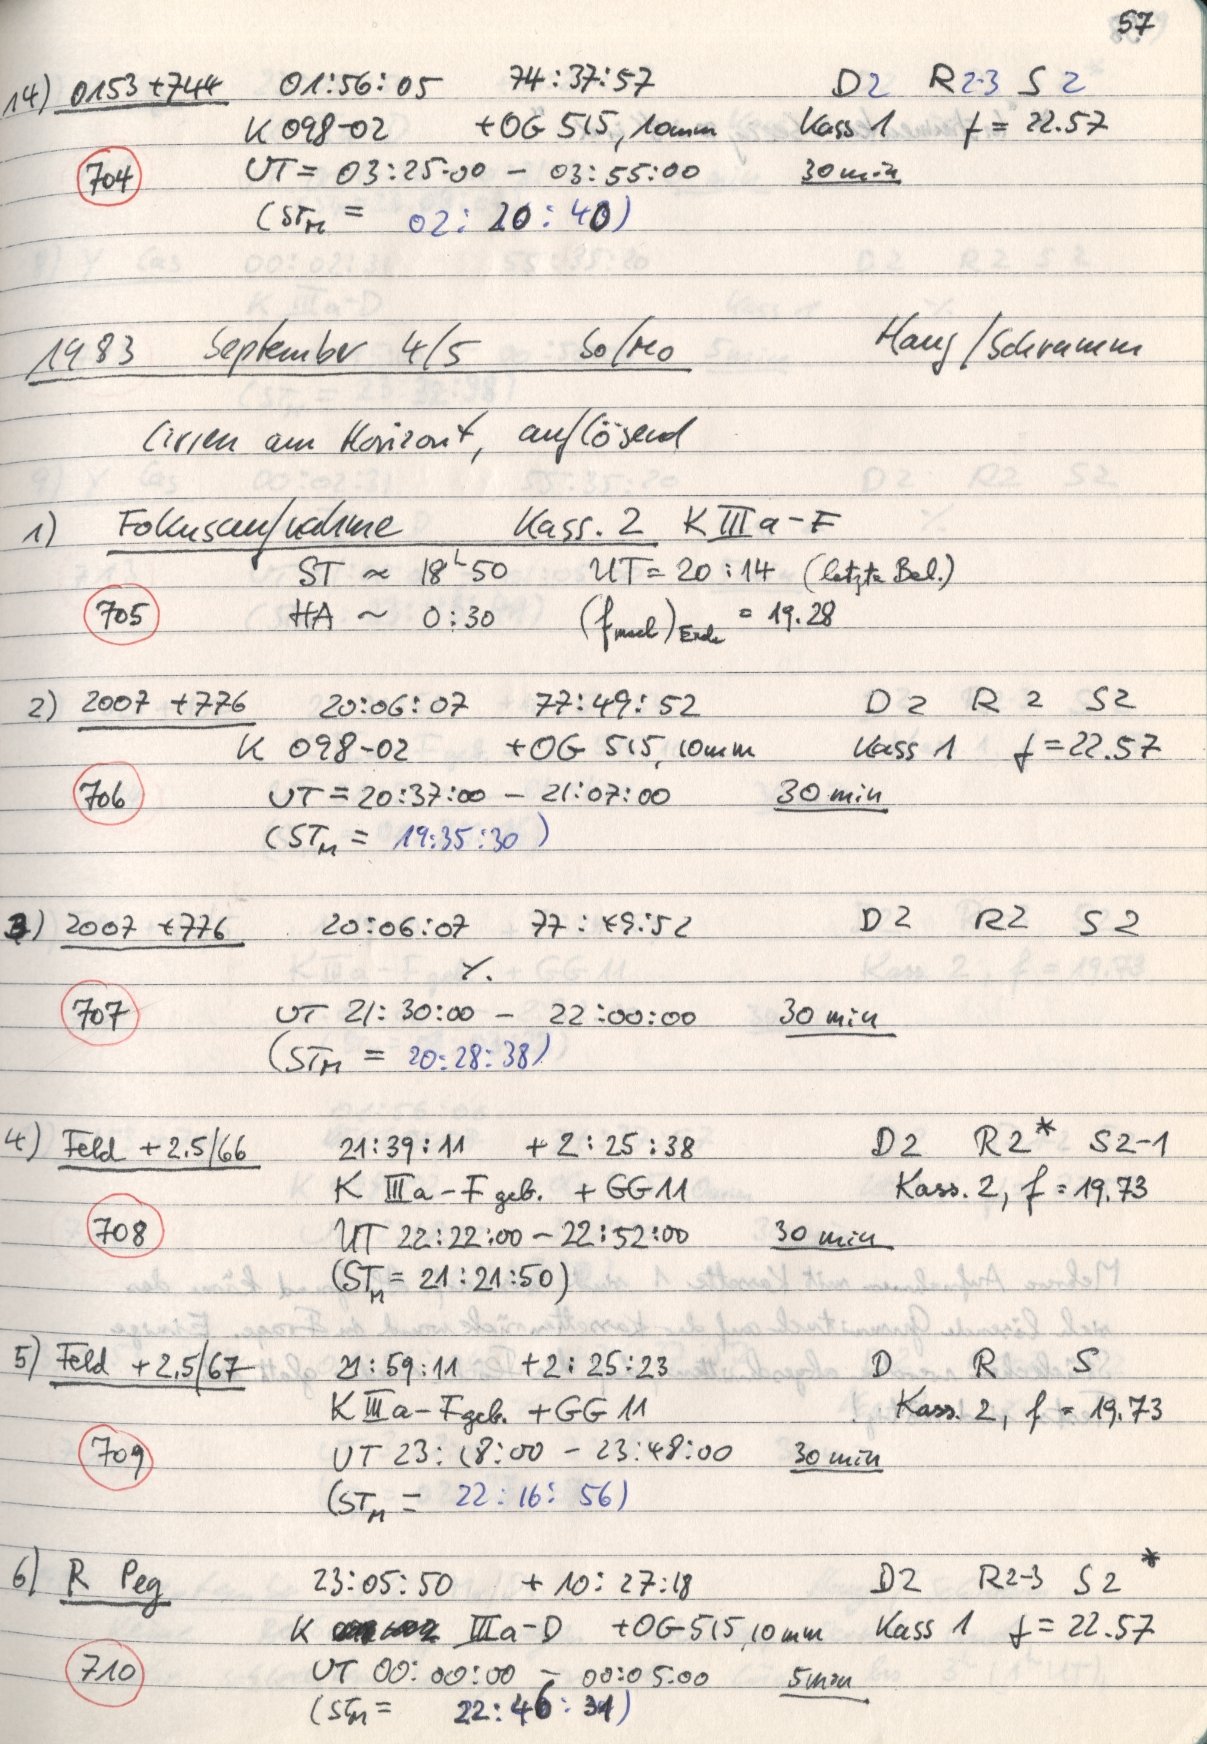 57
14) 0153+744 01:56:05 74:37:57 D2 R2-3 S2
K 098-02 +OG 515, 10mm Kass 1 f = 22.57
704 UT = 03:25:00 - 03:55:00 30 min
(STM = 02:20:40)
1983 September 4/5 So/Mo Haug/Schramm
Cirren am Horizont, auflösend
1) Fokusaufnahme Kass. 2 K IIIa-F
ST ≈ 18h50 UT = 20:14 (letzte Bel.)
705 HA ~ 0:30 (f )Ende = 19.28
2) 2007 +776 20:06:07 77:49:52 D2 R2 S2
K 098-02 +OG 515, 10mm Kass 1 f = 22.57
706 UT = 20:37:00 - 21:07:00 30 min
(STM = 19:35:30)
3) 2007 +776 20:06:07 77:49:52 D2 R2 S2
٪.
707 UT 21:30:00 - 22:00:00 30 min
(STM = 20:28:38)
4) Feld +2.5/66 21:39:11 +2:25:38 D2 R2* S2-1
K IIIa-F geb. + GG11 Kass. 2, f = 19.73
708 UT 22:22:00 - 22:52:00 30 min
(STM = 21:21:50)
5) Feld +2.5/67 21:59:11 +2:25:23 D R S
K IIIa-F geb. + GG 11 Kass. 2, f = 19.73
709 UT 23:18:00 - 23:48:00 30 min
(STM = 22:16:56)
6) R Peg 23:05:50 +10:27:18 D2 R2-3 S2*
K IIIa-D +OG 515, 10mm Kass 1 f = 22.57
710 UT 00:00:00 - 00:05:00 5min
(STM = 22:46:31)